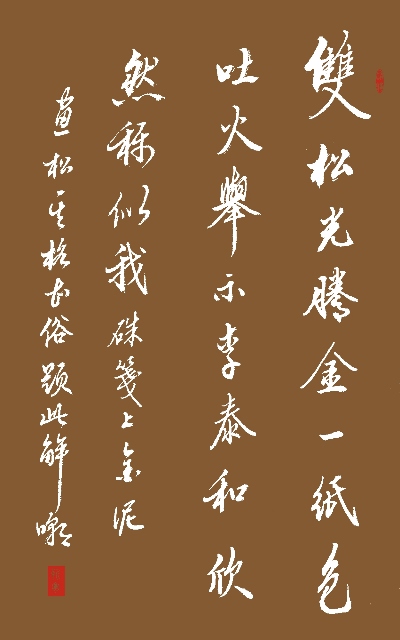 雙松光騰金一紙色
吐火舉示李泰和欣
然称似我硃箋上金泥
畫松一其格古俗題此解嘲